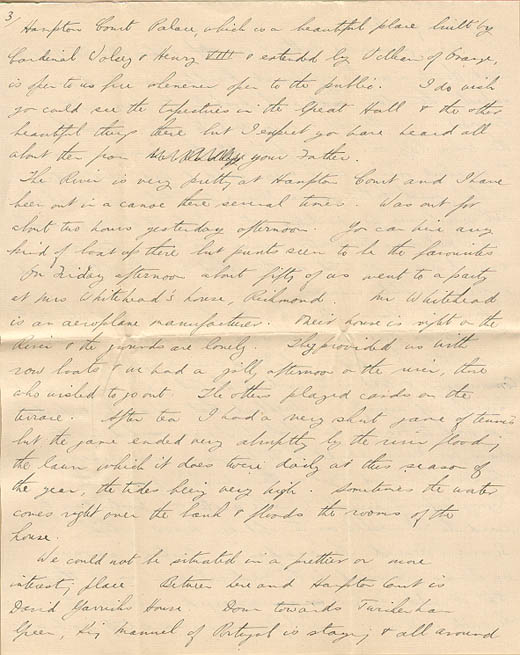 3/
Hampton Court Palace, which is a beautiful place built by
Cardinal Wolsey & Henry VIII & extended by William of Orange,
is open to us free whenever open to the public. I do wish
you could see the tapestries in the Great Hall & the other
beautiful things there but I expect you have heard all
about them from your Father.
The River is very pretty at Hampton Court and I have
been out in a canoe there several times. Was out for
about two hours yesterday afternoon. You can hire any
kind of boat up there but punts seem to be the favourites
On Friday afternoon about fifty of us went to a party
at Mrs Whitehead's house, Richmond. Mr Whitehead
is an aeroplane manufacturer. Their house is right on the
River & the grounds are lovely. They provided us with
row boats & we had a jolly afternoon on the river, those
who wished to go out. The others played cards on the
terrace. After tea I had a very short game of tennis
but the game ended very abruptly by the river flooding
the lawn which it does twice daily at this season of
the year, the tides being very high. Sometimes the water
comes right over the bank & floods the rooms of the
house.
We could not be situated in a prettier or more
interesting place Between here and Hampton Court is
David Garricks House Down towards Twickenham
Green, King Manuel of Portugal is staying & all around